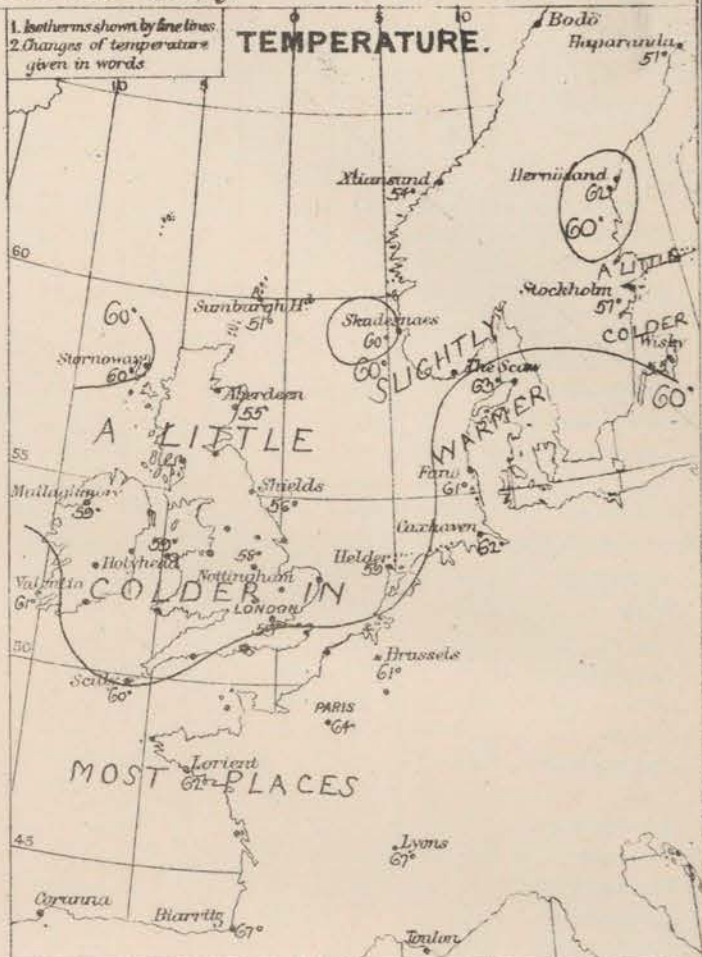 1. Isotherms shown by fine lines
2. Changes of temperature
given in words
TEMPERATURE.
10
5
0
5
10
Bodö
Haparanda
51°
Xtiansund
54°
Hernösand
62°
60°
60
A LITTLE
Stockholm
57°
COLDER
Wisby
60°
Sumburgh Hd
51°
Skudesnaes
60°
60°
60°
Stornoway
60°
SLIGHTLY
The Scaw
63°
WARMER
Aberdeen
55°
A LITTLE
55
Shields
56°
Fanö
61°
Mullaghmore
59°
Cuxhaven
62°
Holyhead
58°
Nottingham
Helder
Valentia
61°
COLDER IN
LONDON
50
Scilly
60°
Brussels
61°
PARIS
64°
Lorient
62°
MOST PLACES
45
Lyons
67°
Corunna
Biarritz
67°
Toulon